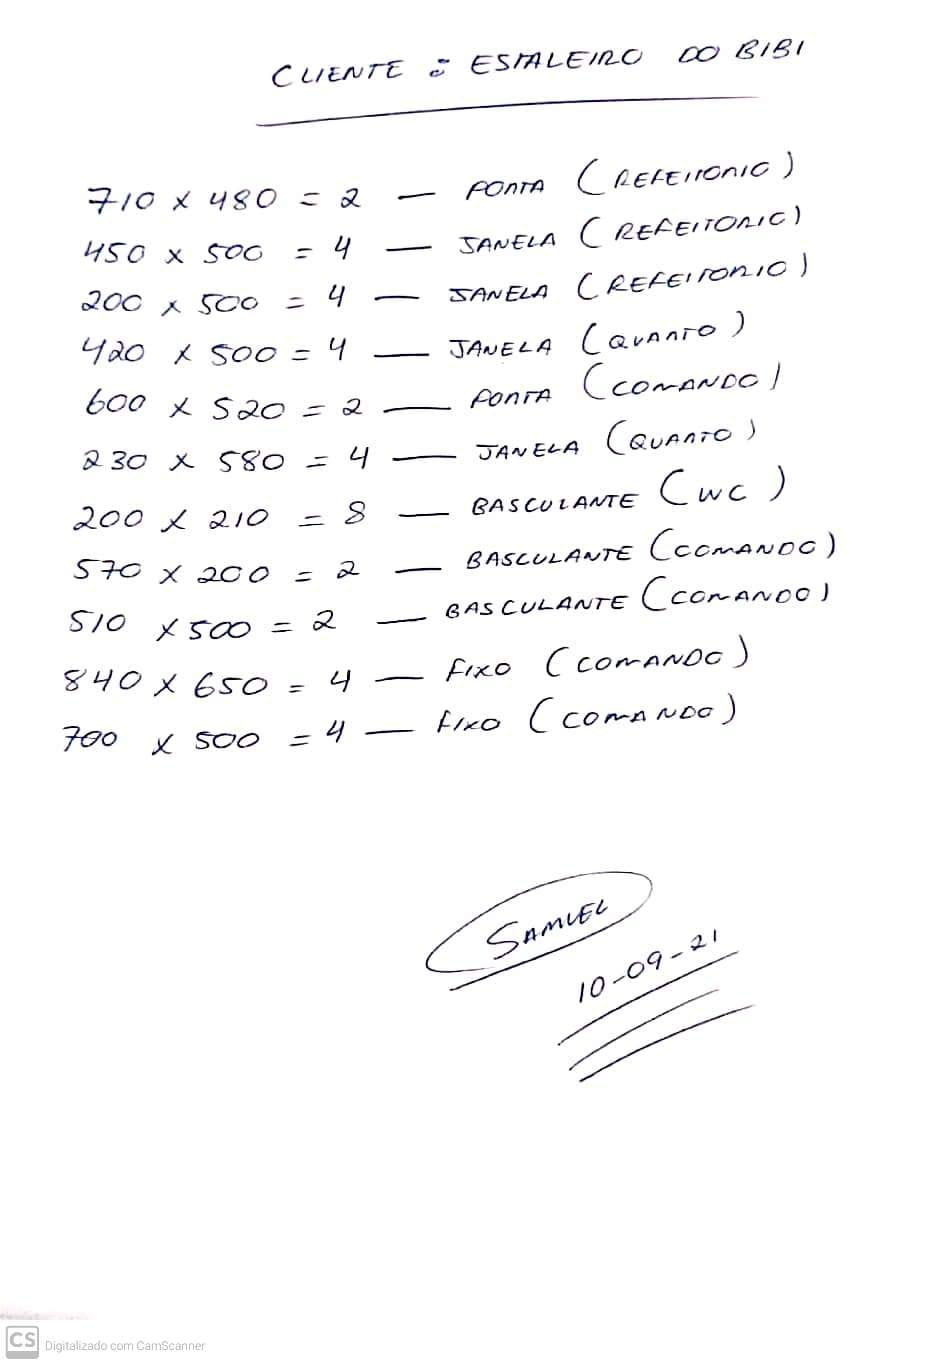 CLIENTE : ESTALEIRO DO BIBI
710 x 480 = 2 — PORTA (REFEITORIO)
450 x 500 = 4 — JANELA (REFEITORIO)
200 x 500 = 4 — JANELA (REFEITORIO)
420 x 500 = 4 — JANELA (QUARTO)
600 x 520 = 2 — PORTA (COMANDO)
230 x 580 = 4 — JANELA (QUARTO)
200 x 210 = 8 — BASCULANTE (WC)
570 x 200 = 2 — BASCULANTE (COMANDO)
510 x 500 = 2 — BASCULANTE (COMANDO)
840 x 650 = 4 — FIXO (COMANDO)
700 x 500 = 4 — FIXO (COMANDO)
SAMUEL
10-09-21
CS Digitalizado com CamScanner